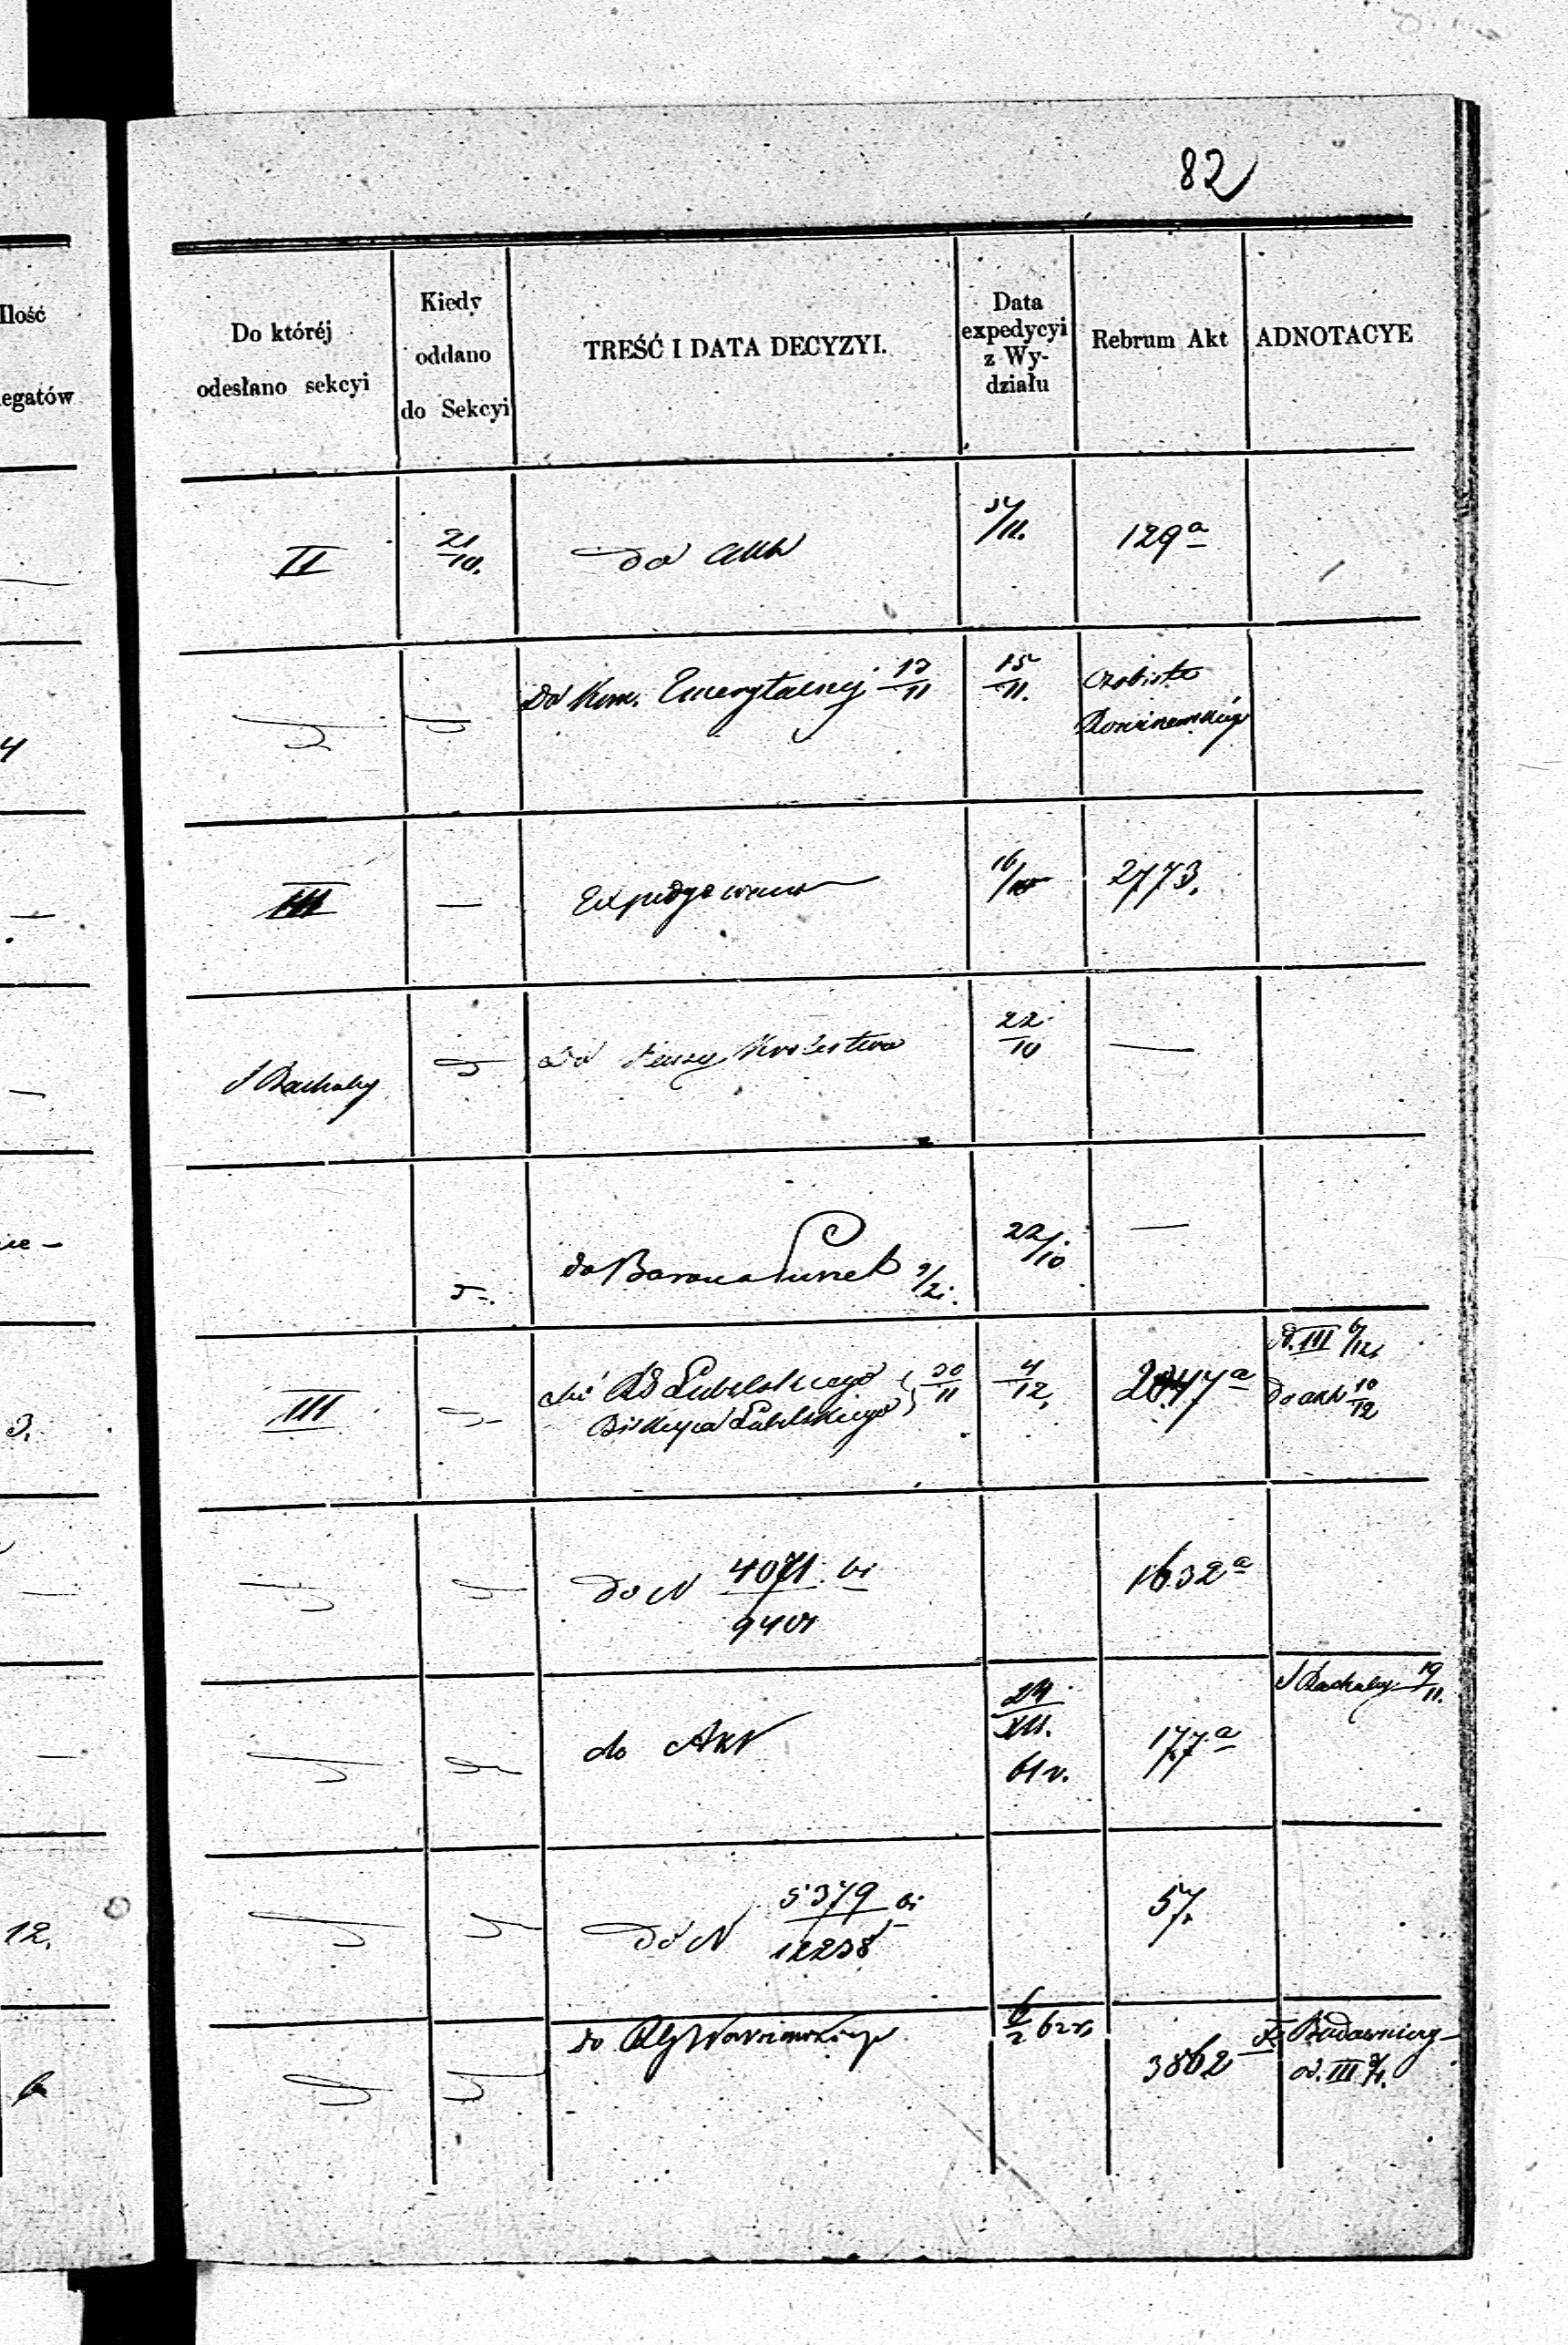 82
Ilość
egatów
Do któréj
odesłano sekcyi
Kiedy
oddano
do Sekcyi
TREŚĆ I DATA DECYZYI.
Data
expedycyi
z Wy-
działu
Rebrum Akt
ADNOTACYE
II
21/10.
Do Akt
/11.
129a
4
Do Kom. Emerytalnej 17/11
15/11.
Osobiste
III
—
Expedyowano
16/10
2773.
S Rachuby
Do Kassy Królestwa
22/10
—
do Barona
22/10
—
3.
III
do RG Lubelskiego 30/11
Biskupa Lubelskiego
4/12
2047a
od. III 6/12.
Do akt 10/12
Do N 4071/9401
1632a
do Akt
24/XII.
61 r.
177a
S Rachuby 19/11.
12.
Do N 5379/12238
57.
do RG Warszawskiego
62 r.
3862
od. III